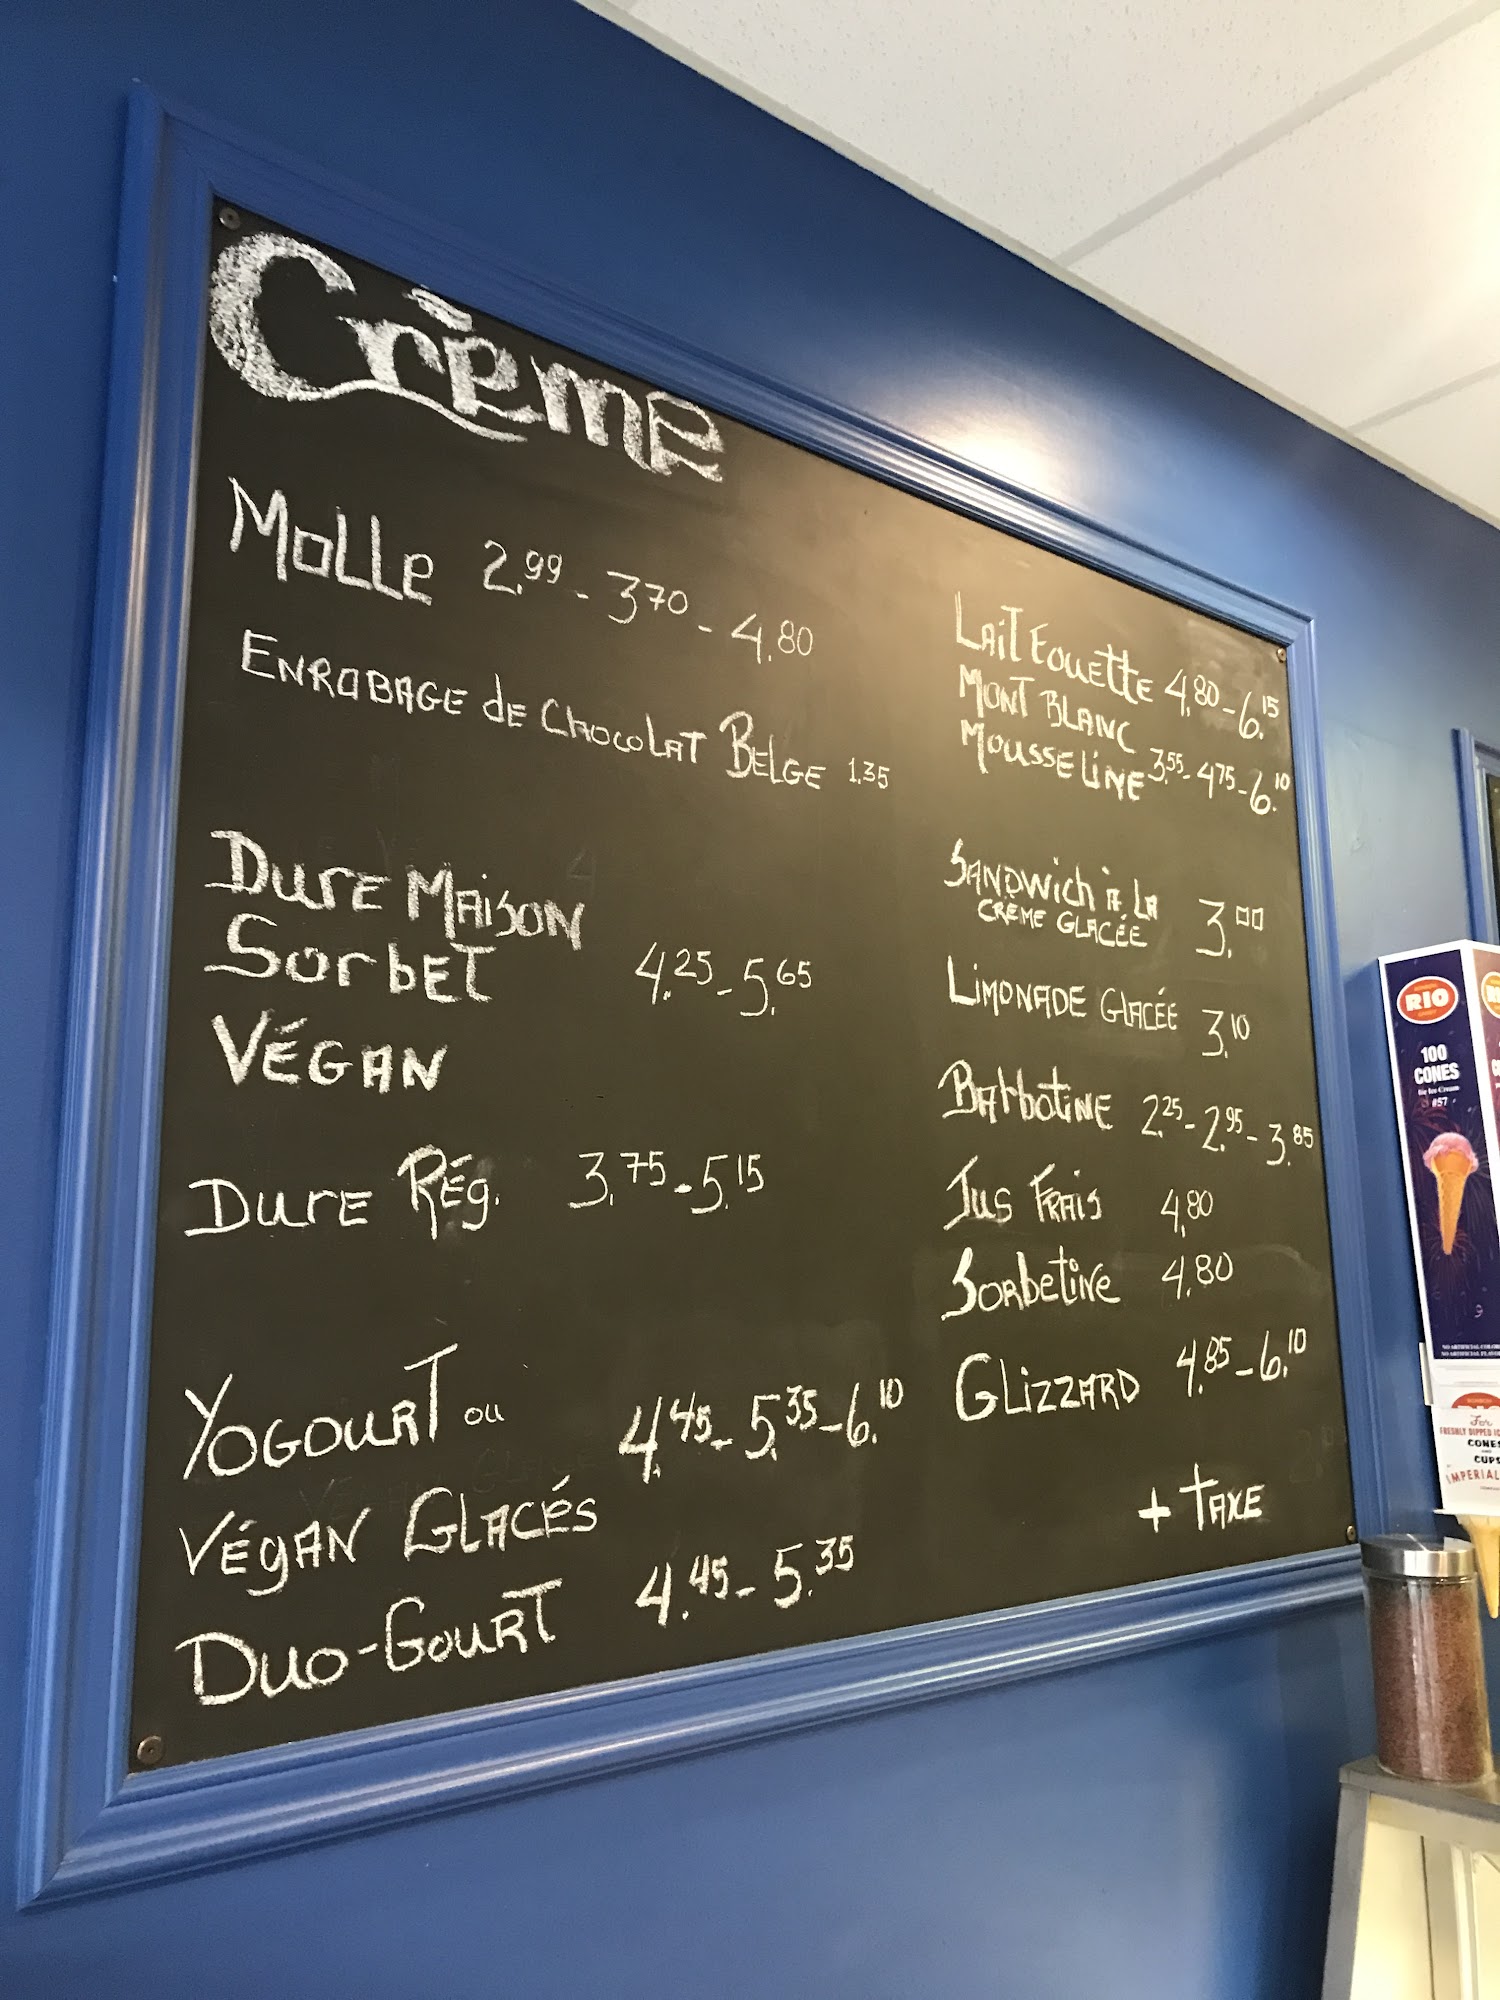 Crème
Molle 2.99 - 3.70 - 4.80
Enrobage de Chocolat Belge 1.35
Dure Maison
Sorbet 4.25 - 5.65
Végan
Dure Rég. 3.75 - 5.15
Yogourt ou 4.45 - 5.35 - 6.10
Végan Glacés
Duo-Gourt 4.45 - 5.35
Lait Fouetté 4.80 - 6.15
Mont Blanc
Mousseline 3.55 - 4.75 - 6.10
Sandwich à la
Crème Glacée 3.00
Limonade Glacée 3.10
Barbotine 2.25 - 2.95 - 3.85
Jus Frais 4.80
Sorbetine 4.80
Glizzard 4.85 - 6.10
+ Taxe
RIO
100
CONES
for Ice Cream
#57
For
FRESHLY DIPPED
CONES
CUPS
IMPERIAL